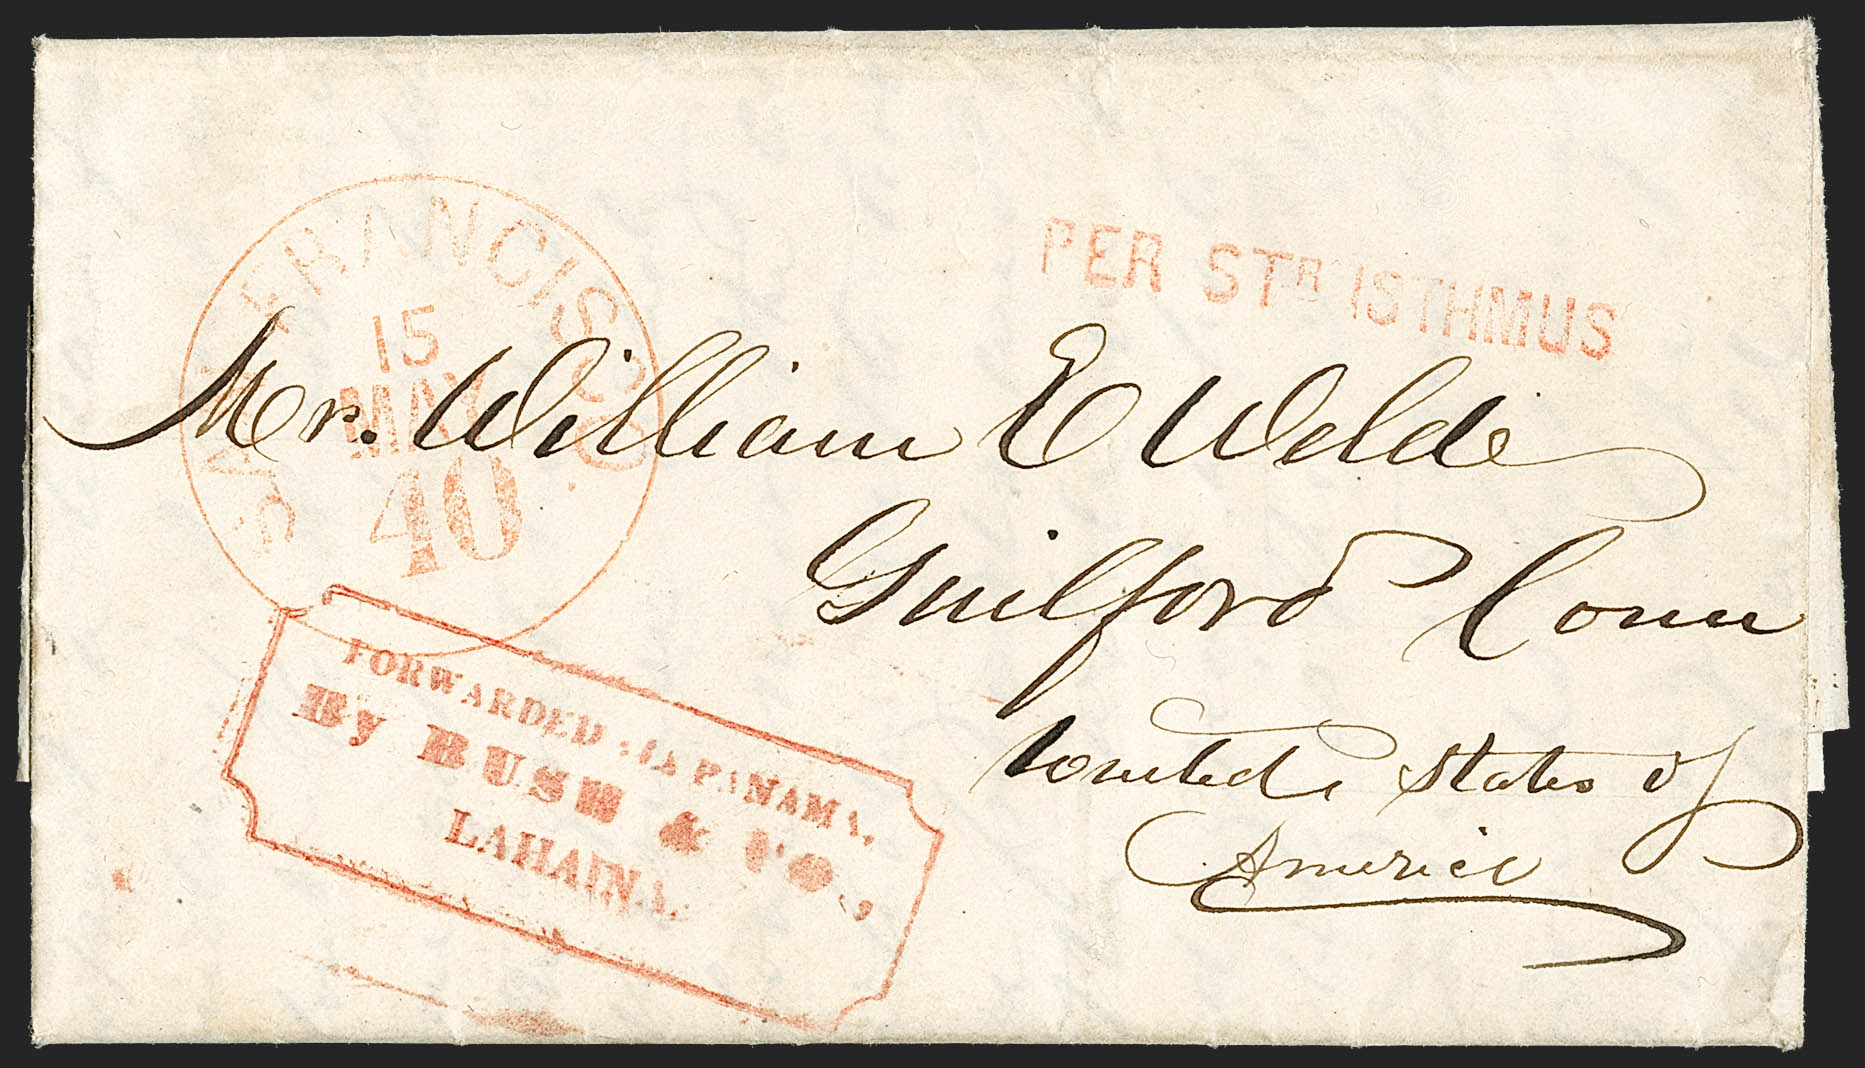 SAN FRANCISCO
15
MAY
40
PER STR ISTHMUS
Mr. William E Welde
Guilford Conn
United States of
America
FORWARDED VIA PANAMA,
By BUSH & CO.,
LAHAINA.